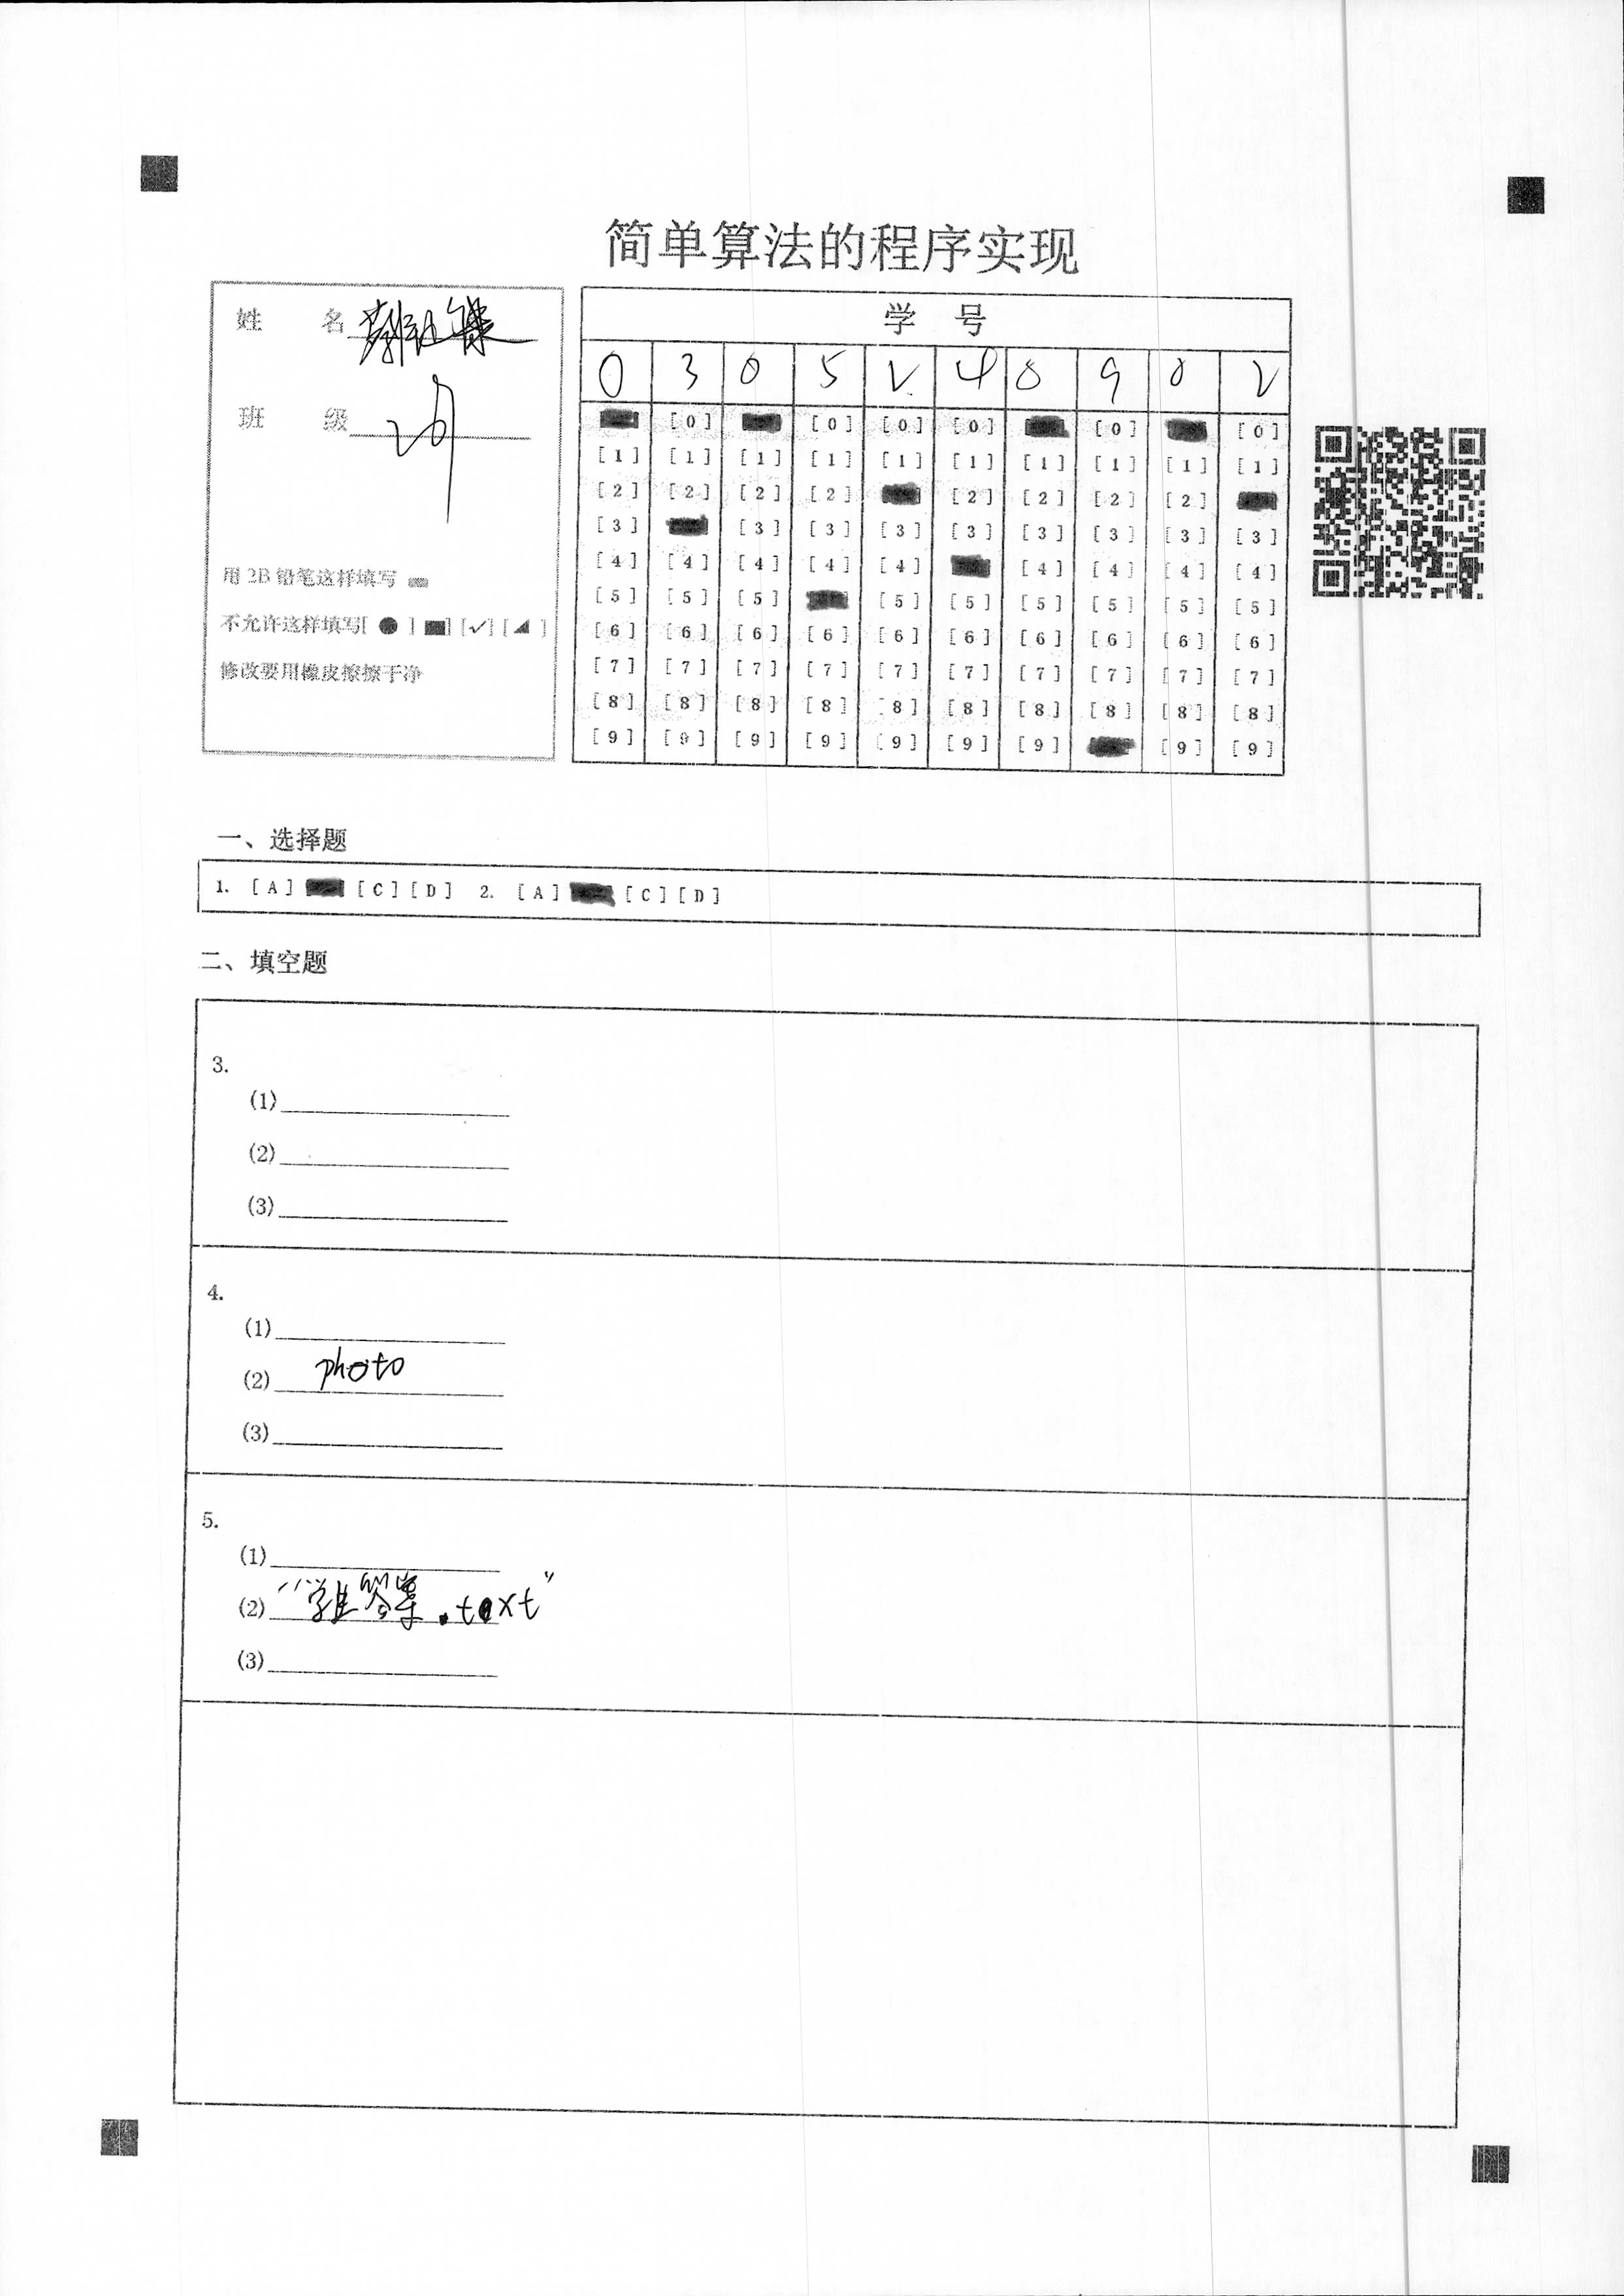 简单算法的程序实现
姓 名
班 级
用 2B 铅笔这样填写
不允许这样填写[ ● ] ■] [✓] [◢ ]
修改要用橡皮擦擦干净
学 号
0 3 0 5 2 4 0 9 0 2
[0] [0] [0] [0] [0] [0]
[1] [1] [1] [1] [1] [1] [1] [1] [1] [1]
[2] [2] [2] [2] [2] [2] [2] [2]
[3] [3] [3] [3] [3] [3] [3] [3] [3]
[4] [4] [4] [4] [4] [4] [4] [4] [4]
[5] [5] [5] [5] [5] [5] [5] [5] [5]
[6] [6] [6] [6] [6] [6] [6] [6] [6] [6]
[7] [7] [7] [7] [7] [7] [7] [7] [7] [7]
[8] [8] [8] [8] [8] [8] [8] [8] [8] [8]
[9] [9] [9] [9] [9] [9] [9] [9] [9]
一、选择题
1. [A] [C] [D] 2. [A] [C] [D]
二、填空题
3.
(1)
(2)
(3)
4.
(1)
(2) photo
(3)
5.
(1)
(2) "学生答案.text"
(3)